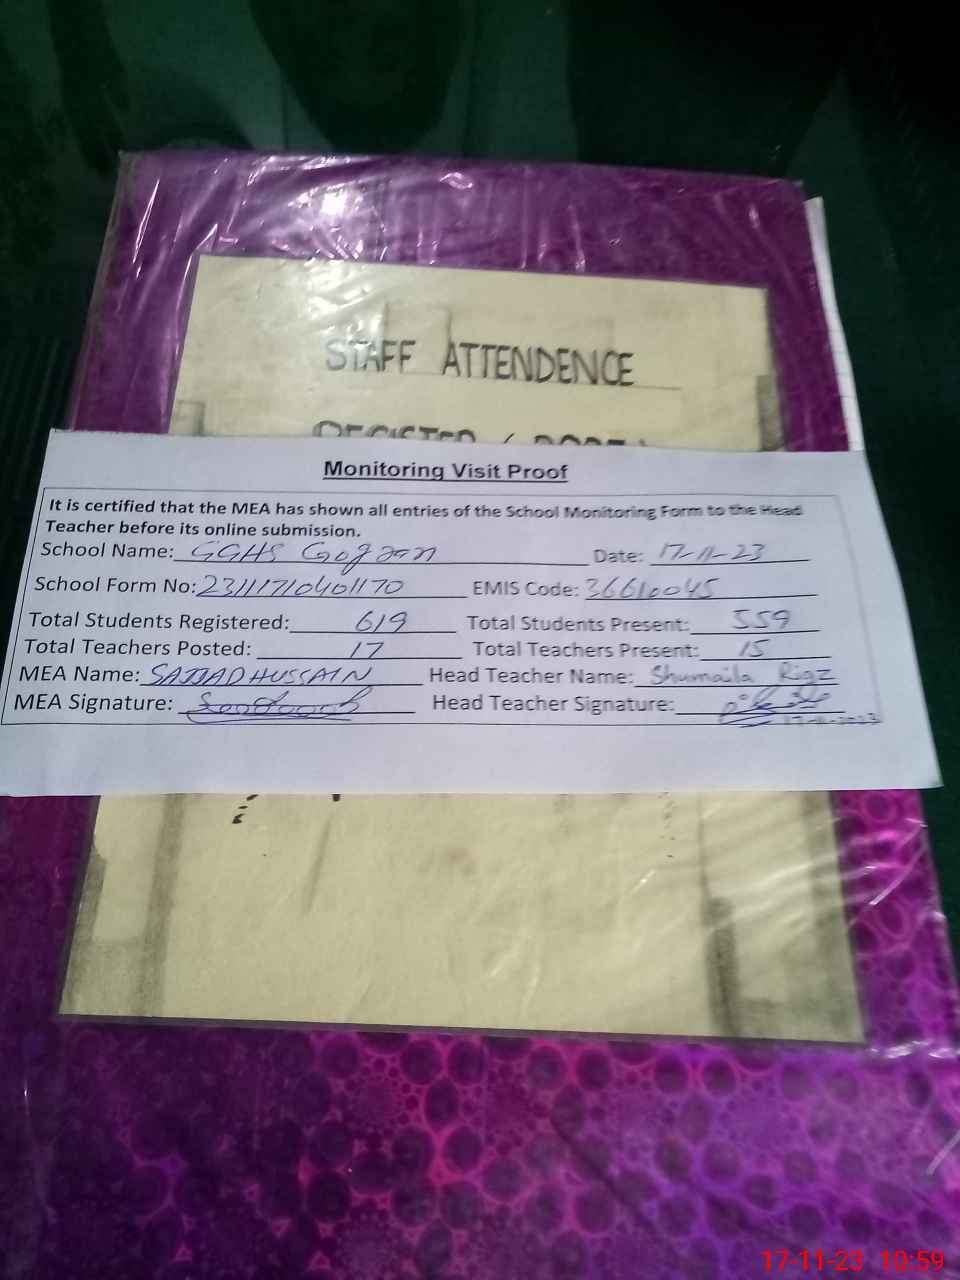 STAFF ATTENDENCE
REGISTER /
Monitoring Visit Proof
It is certified that the MEA has shown all entries of the School Monitoring Form to the Head
Teacher before its online submission.
School Name: GGHS Gogran Date: 17-11-23
School Form No: 23111710401170 EMIS Code: 36610045
Total Students Registered: 619 Total Students Present: 559
Total Teachers Posted: 17 Total Teachers Present: 15
MEA Name: SAJJAD HUSSAIN Head Teacher Name: Shumaila Riaz
MEA Signature: Head Teacher Signature:
17-11-2023
17-11-23 10:59